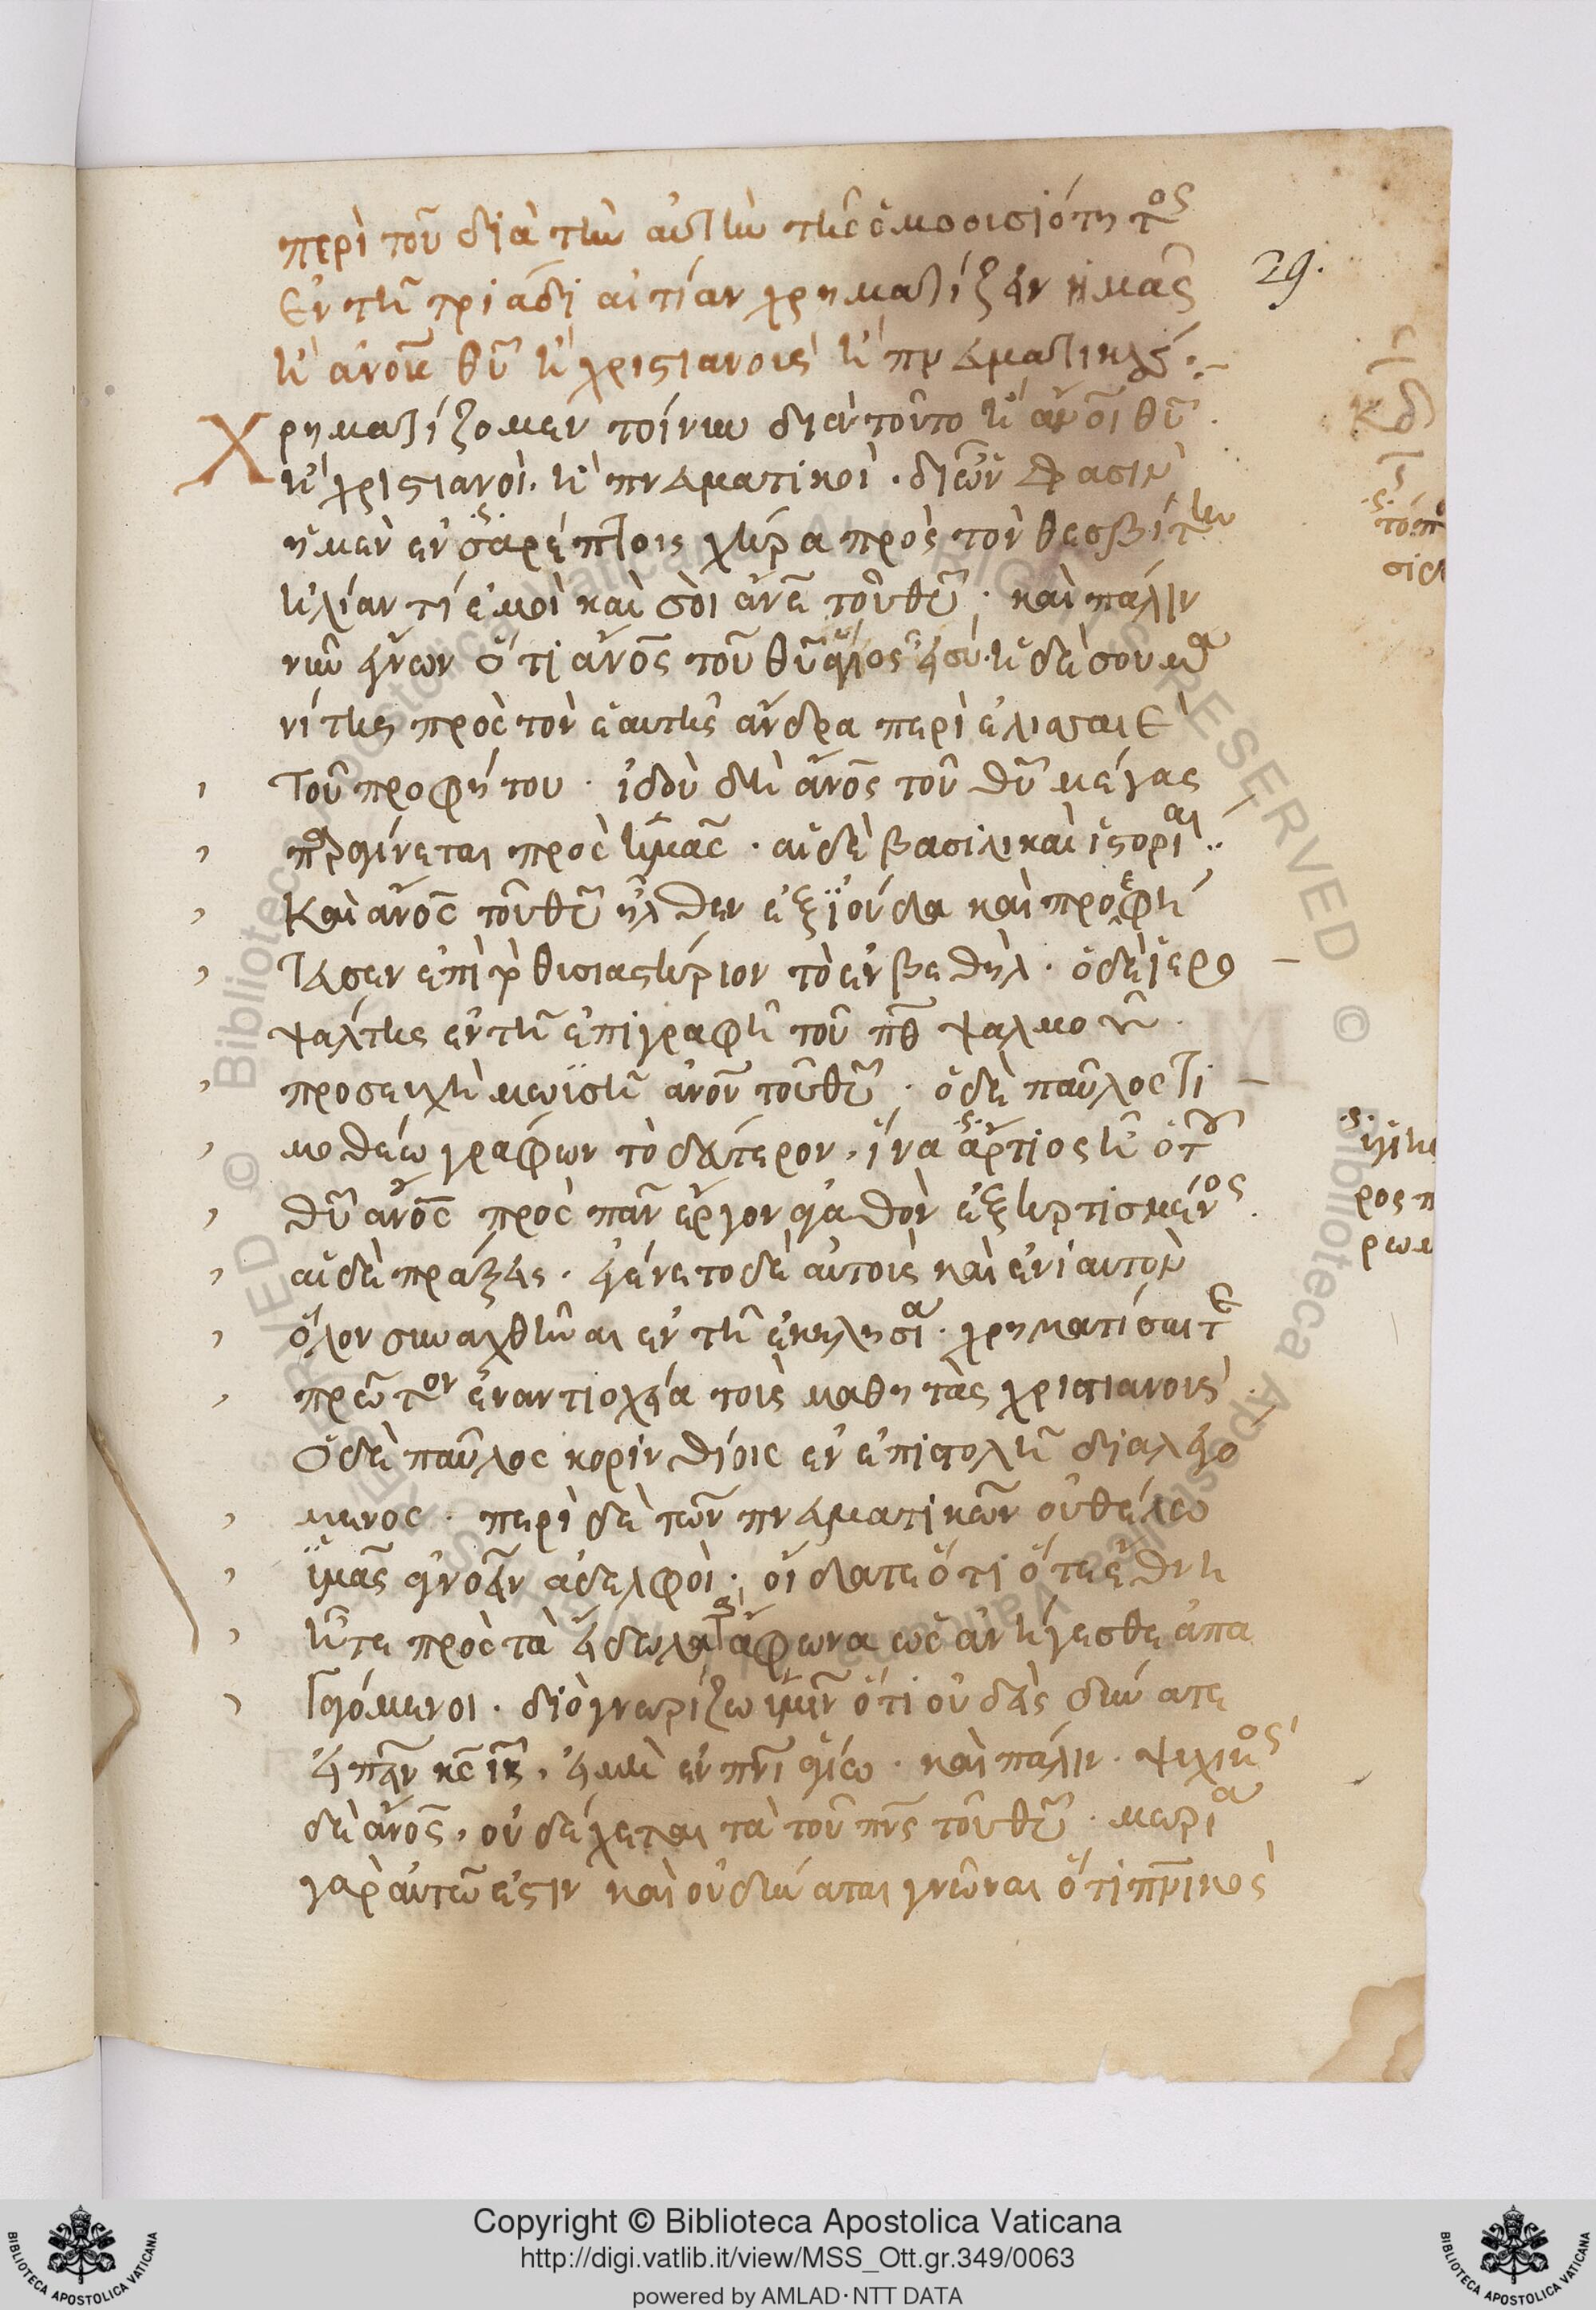 περὶ τοῦ διὰ τὴν αὐτὴν τῆς ὁμοουσιότητος
29.
ἐν τῆ τριάδι αἰτίαν χρηματίζειν ἡμᾶς
κ(αὶ) ἀνους θυ κ(αὶ) χριστιανοὺς κ(αὶ) πνευματικούς:~
Χρηματίζομεν τοίνυν διὰ τοῦτο κ(αὶ) ανοι θυ
κ(αὶ) χριστιανοὶ. κ(αὶ) πνευματικοὶ. διῶν φασιν
ἡ μὲν ἐν σαρέπτοις χήρα πρὸς τὸν θεσβίτην
ἠλίαν τί ἐμοὶ καὶ σοὶ ανε τοῦ θυ. καὶ πάλιν
νῦν ἔγνων ὅτι ανος τοῦ θυ ἅγιος εἶ σύ. ἡ δὲ σουμα
νίτης πρὸς τὸν ἑαυτῆς ἄνδρα περὶ ἐλισσαιὲ
τοῦ προφήτου. ἰδοὺ δὴ ανος τοῦ θυ μέγας
παραγίνεται πρὸς ἡμᾶς. αἱ δὲ βασιλικαὶ ἱστορίαι.
καὶ ανος τοῦ θυ ἦλθεν ἐξ ἰούδα καὶ προεφή
τευσεν ἐπὶ τὸ θυσιαστήριον τὸ ἐν βεθήλ. ὁ δὲ ἱερο
ψάλτης ἐν τῆ ἐπιγραφῆ τοῦ πθ ψαλμοῦ.
προσευχὴ μωϊσῆ ανου τοῦ θυ. ὁ δὲ παῦλος τι
μοθέω γράφων τὸ δεύτερον, ἵνα ἄρτιος ἦ ὁ τοῦ
θυ ανος πρὸς πᾶν ἔργον ἀγαθὸν ἐξηρτισμένος.
αἱ δὲ πράξεις. ἐγένετο δὲ αὐτοὺς καὶ ἐνιαυτὸν
ὅλον συναχθῆναι ἐν τῆ ἐκκλησία. χρηματίσαι τε
πρῶτον ἐν ἀντιοχεία τοὺς μαθητὰς χριστιανούς.
ὁ δὲ παῦλος κορινθίοις ἐν ἐπιστολῆ διαλεγό
μενος. περὶ δὲ τῶν πνευματικῶν οὐ θέλω
ὑμᾶς ἀγνοεῖν ἀδελφοὶ. οἴδατε ὅτι ὅτε ἔθνη
ἦτε πρὸς τὰ εἴδωλα τὰ ἄφωνα ὡς ἂν ἤγεσθε ἀπα
γόμενοι. διὸ γνωρίζω ὑμῖν ὅτι οὐδεὶς δύναται
εἰπεῖν κς ις, εἰ μὴ ἐν πνι ἁγίω. καὶ πάλιν. ψυχικὸς
δὲ ανος, οὐ δέχεται τὰ τοῦ πνς τοῦ θυ. μωρία
γὰρ αὐτῶ ἐστιν καὶ οὐ δύναται γνῶναι ὅτι πνικῶς
κδ
Copyright © Biblioteca Apostolica Vaticana
http://digi.vatlib.it/view/MSS_Ott.gr.349/0063
powered by AMLAD·NTT DATA